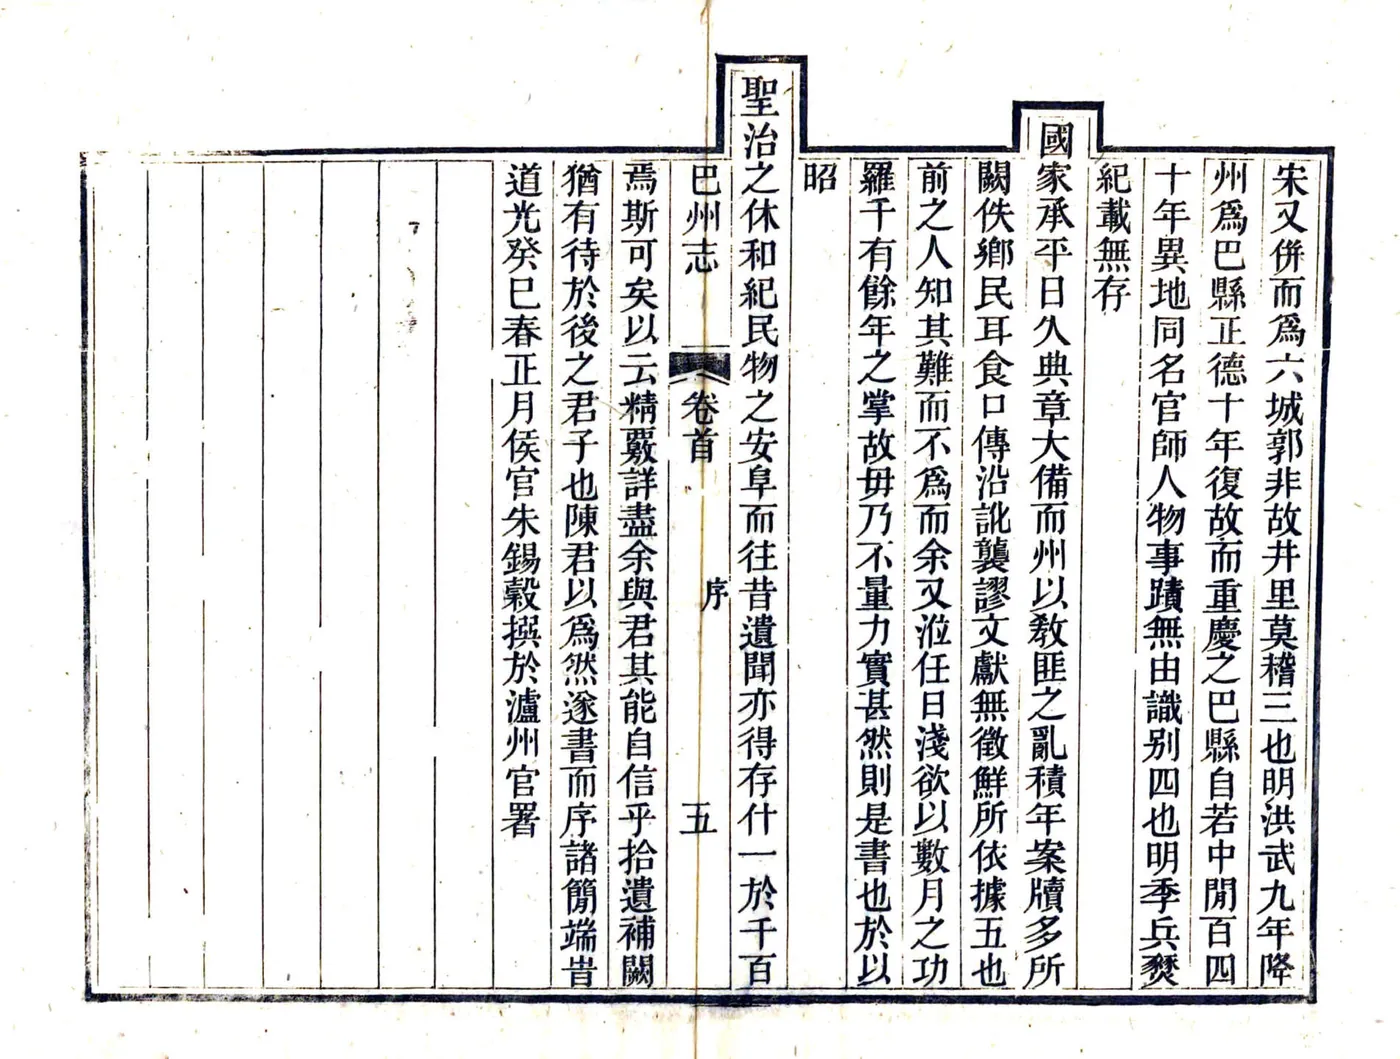 宋又併而爲六城郭非故井里莫稽三也明洪武九年降
州爲巴縣正德十年復故而重慶之巴縣自若中閒百四
十年異地同名官師人物事蹟無由識别四也明季兵燹
紀載無存
國家承平日久典章大備而州以教匪之亂積年案牘多所
闕佚鄉民耳食口傳沿訛襲謬文獻無徵鮮所依據五也
前之人知其難而不爲而余又涖任日淺欲以數月之功
羅千有餘年之掌故毋乃不量力實甚然則是書也於以
昭
聖治之休和紀民物之安阜而往昔遺聞亦得存什一於千百
巴州志 卷首 序 五
焉斯可矣以云精覈詳盡余與君其能自信乎拾遺補闕
猶有待於後之君子也陳君以爲然遂書而序諸簡端旹
道光癸巳春正月侯官朱錫穀撰於瀘州官署